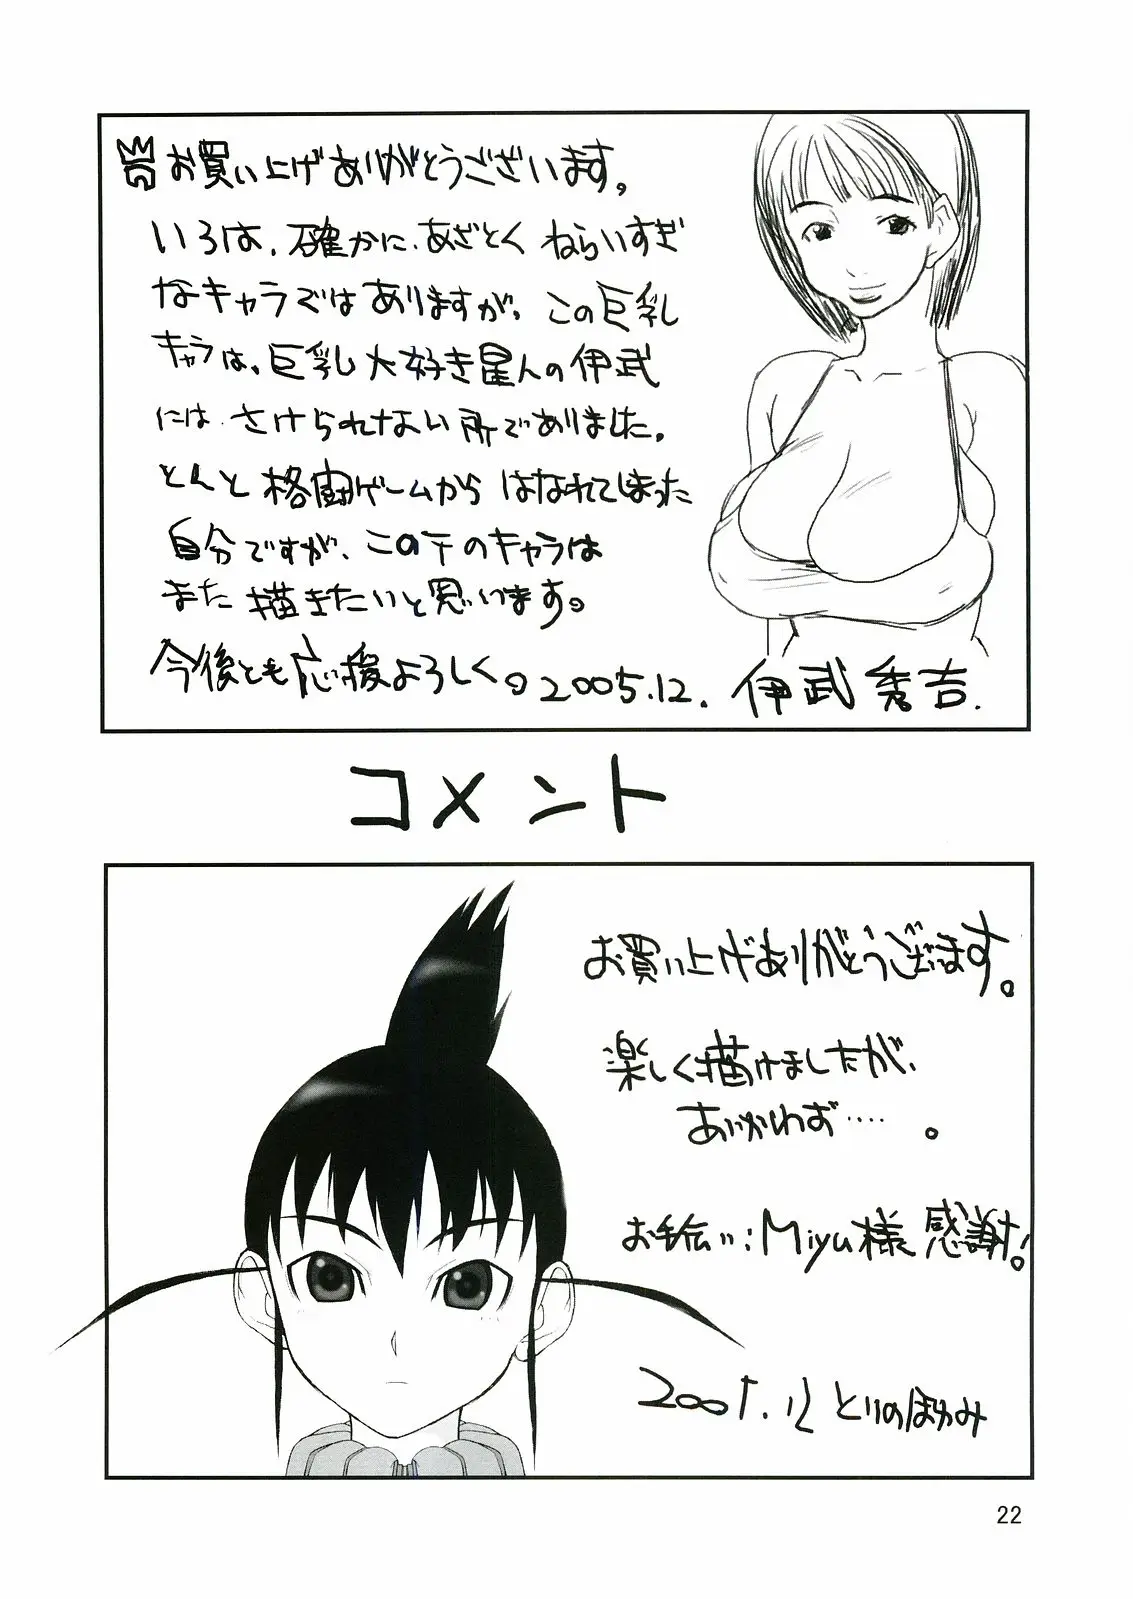 お買い上げありがとうございます。
いろは、確かに、あざとくねらいすぎ
なキャラではありますが、この巨乳
キャラは、巨乳大好き星人の伊武
にはさけられない所でありました。
とんと格闘ゲームからはなれてしまった
自分ですが、このテのキャラは
また描きたいと思います。
今後とも応援よろしく。2005.12. 伊武秀吉.
コメント
お買い上げありがとうございます。
楽しく描けましたが、
あいかわらず‥‥。
お手伝い:Miyu様感謝!
2005.12 とりのほかみ
22